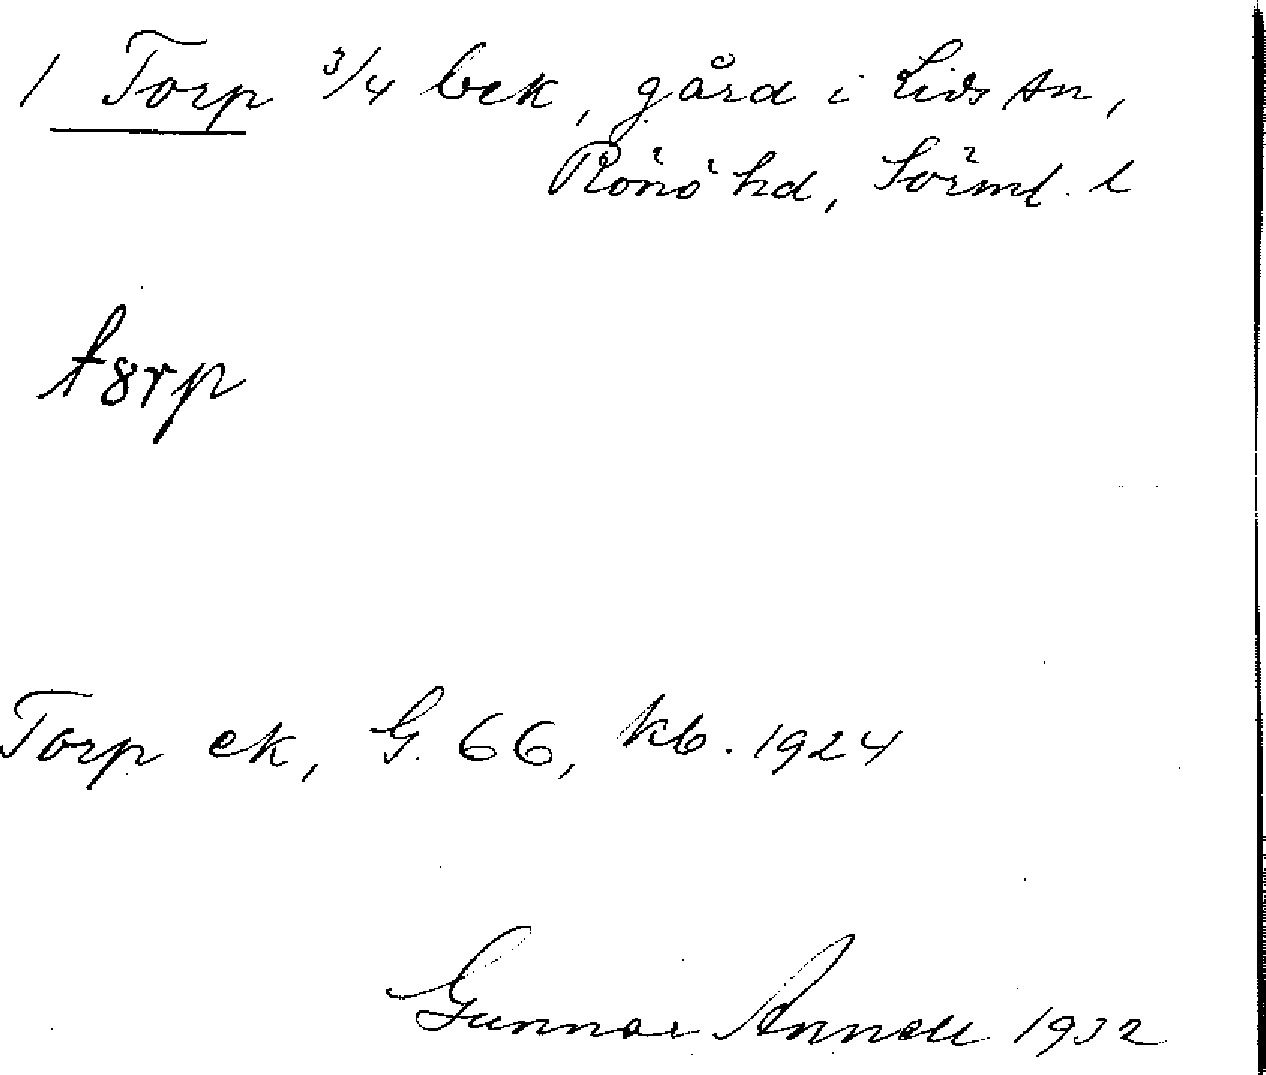 1 Torp 3/4 bek, gård i Lids sn,
Rönö hd, Sörml. l
tȣrp
Torp ek, G. 66, kb. 1924
Gunnar Annell 1932